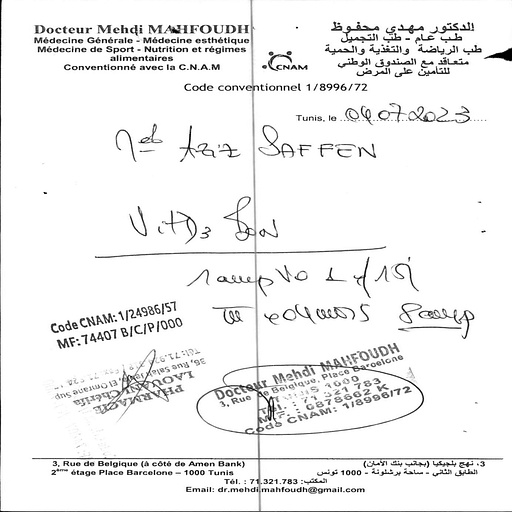 Docteur Mehdi MAHFOUDH
Médecine Générale - Médecine esthétique
Médecine de Sport - Nutrition et régimes
alimentaires
Conventionné avec la C.N.A.M
الدكتور مهدي محفوظ
طب عام - طب التجميل
طب الرياضة والتغذية والحمية
متعاقد مع الصندوق الوطني
للتأمين على المرض
CNAM
Code conventionnel 1/8996/72
Tunis, le 04.07.2023
Aziz SAFFEN
Vit D3 BON
1 amp VO 1 / 15j
8 amp
Code CNAM: 1/24986/57
MF: 74407 B/C/P/000
PHARMACIE
Docteur Mehdi MAHFOUDH
3, Rue de Belgique, Place Barcelone
TUNIS 1000
Tél.: 71 321 783
M.F.: 0878662 K
Code CNAM: 1/8996/72
3, Rue de Belgique (à côté de Amen Bank)
2ème étage Place Barcelone – 1000 Tunis
3، نهج بلجيكيا (بجانب بنك الأمان)
الطابق الثاني - ساحة برشلونة - 1000 تونس
Tél. : 71.321.783 :المكتب
Email: dr.mehdi.mahfoudh@gmail.com